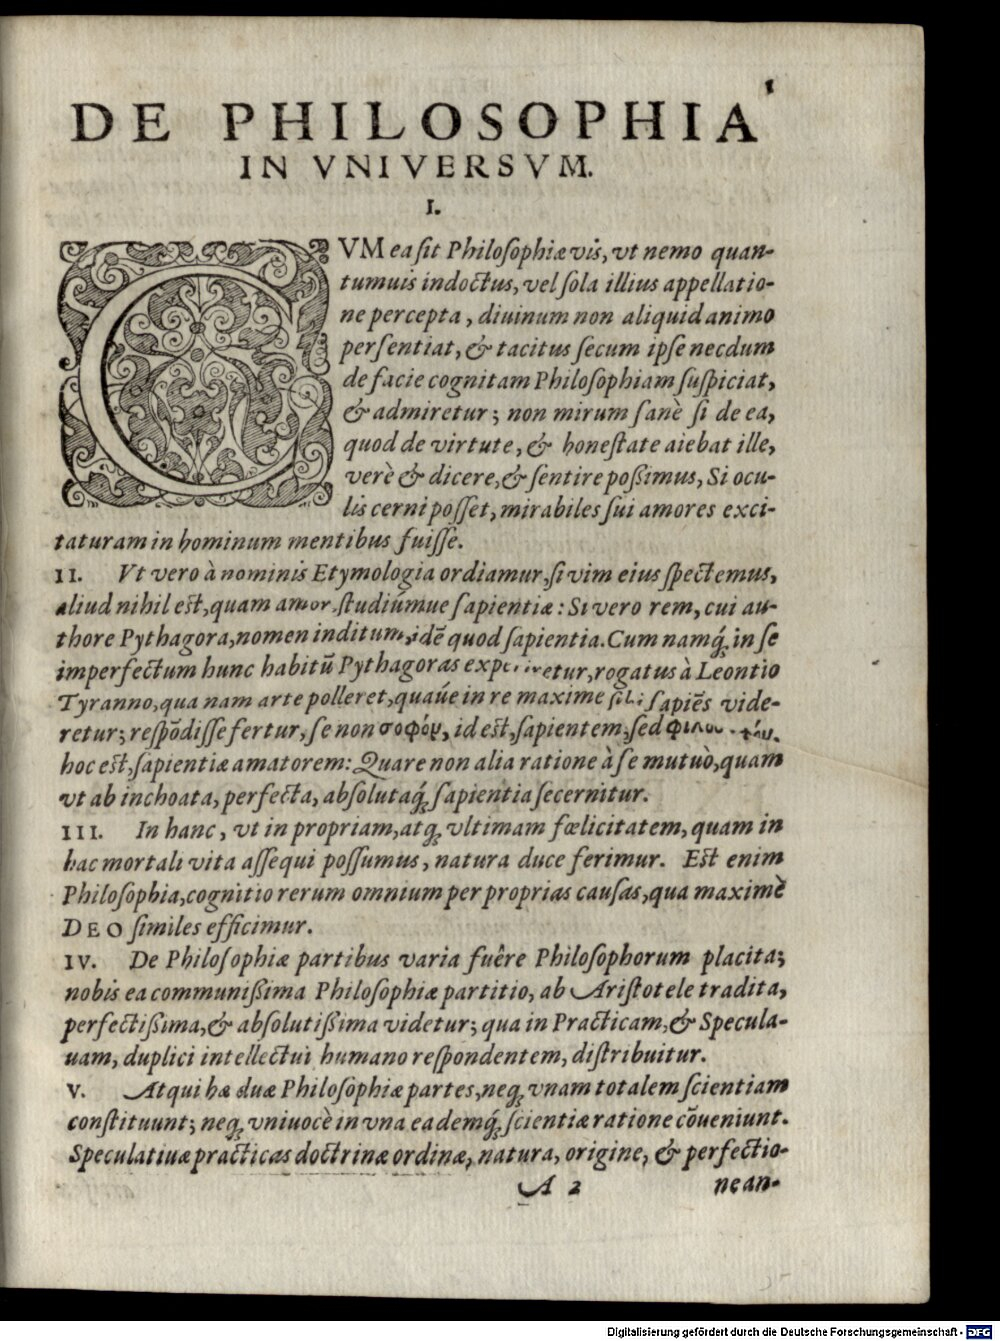 1
DE PHILOSOPHIA
IN VNIVERSVM.
I.
CVM ea sit Philosophiæ vis, vt nemo quan-
tumuis indoctus, vel sola illius appellatio-
ne percepta, diuinum non aliquid animo
persentiat, & tacitus secum ipse necdum
de facie cognitam Philosophiam suspiciat,
& admiretur; non mirum sanè si de ea,
quod de virtute, & honestate aiebat ille,
verè & dicere, & sentire poßimus, Si ocu-
lis cerni posset, mirabiles sui amores exci-
taturam in hominum mentibus fuisse.
II. Vt vero à nominis Etymologia ordiamur, si vim eius spectemus,
aliud nihil est, quam amor, studiúmue sapientiæ: Si vero rem, cui au-
thore Pythagora, nomen inditum, idẽ quod sapientia. Cum namq́; in se
imperfectum hunc habitũ Pythagoras experiretur, rogatus à Leontio
Tyranno, qua nam arte polleret, quaúe in re maxime sibi sapiẽs vide-
retur; respõdisse fertur, se non σοφόν, id est, sapientem, sed
hoc est, sapientiæ amatorem: Quare non alia ratione à se mutuò, quam
vt ab inchoata, perfecta, absolutaq́; sapientia secernitur.
III. In hanc, vt in propriam, atq; vltimam fœlicitatem, quam in
hac mortali vita assequi possumus, natura duce ferimur. Est enim
Philosophia, cognitio rerum omnium per proprias causas, qua maximè
DEO similes efficimur.
IV. De Philosophiæ partibus varia fuêre Philosophorum placita;
nobis ea communißima Philosophiæ partitio, ab Aristotele tradita,
perfectißima, & absolutißima videtur; qua in Practicam, & Specula-
uam, duplici intellectui humano respondentem, distribuitur.
V. Atqui hæ duæ Philosophiæ partes, neq; vnam totalem scientiam
constituunt; neq; vniuocè in vna eademq́; scientiæ ratione cõueniunt.
Speculatiua practicas doctrinæ ordinæ, natura, origine, & perfectio-
A 2 nean-
Digitalisierung gefördert durch die Deutsche Forschungsgemeinschaft - DFG